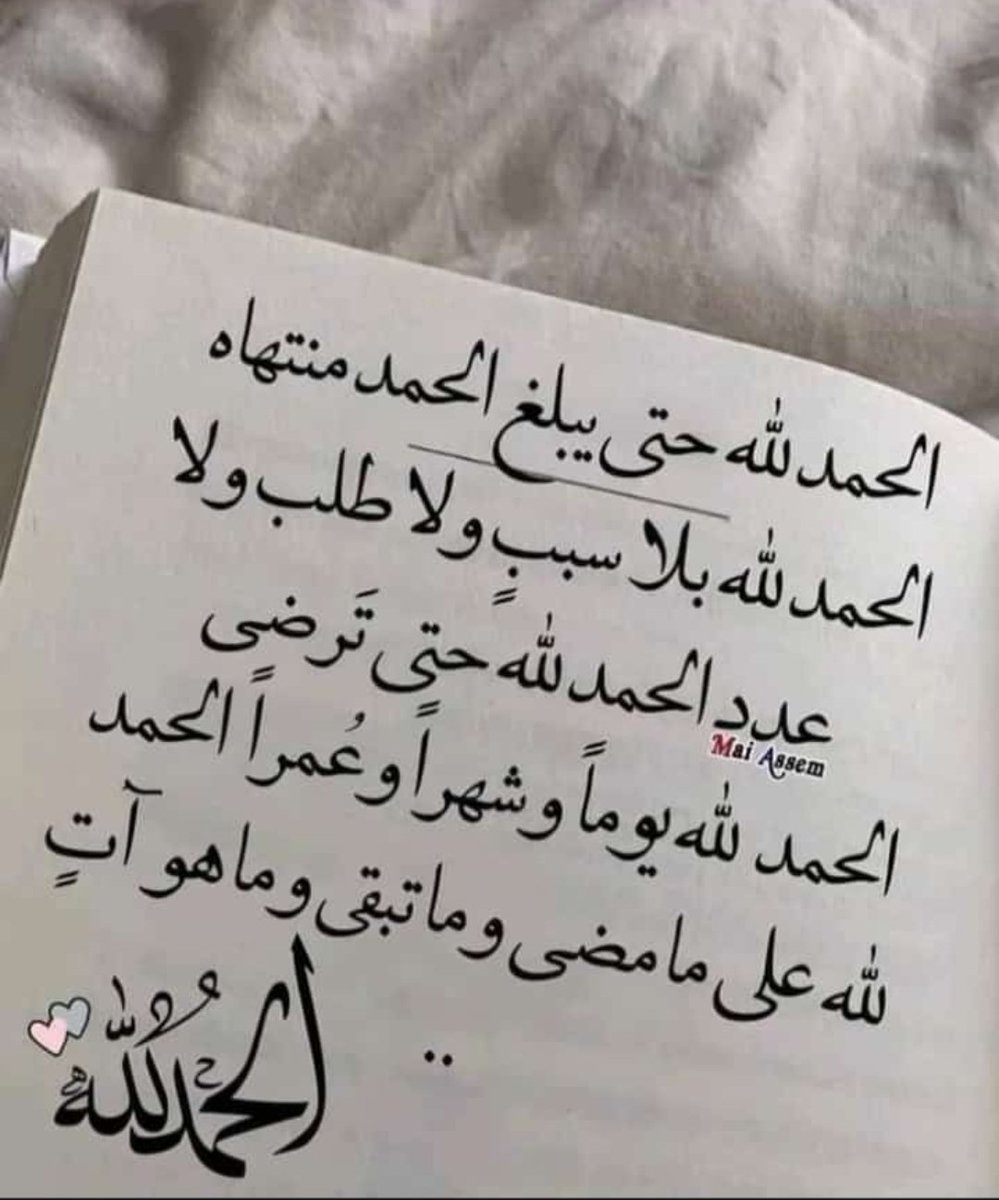 الحمد لله حتى يبلغ الحمد منتهاه
الحمد لله بلا سببٍ ولا طلب ولا
عدد الحمد لله حتى تَرضى
Mai Assem
الحمد لله يوماً وشهراً وعُمراً الحمد
لله على ما مضى وما تبقى وما هو آتٍ
..
الحمد لله